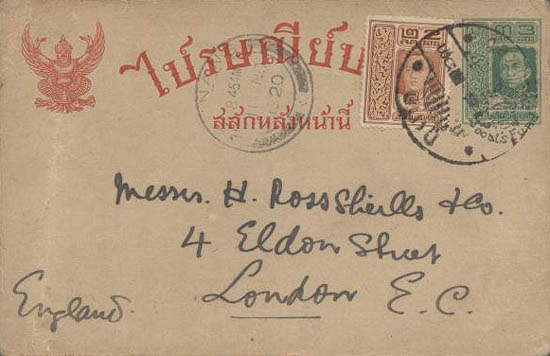 ไปรษณียบ
สลักหลังหน้านี้
8 45
20
Messrs. H. Ross Sherlls & Co.
4 Eldon Street
London E. C.
England.